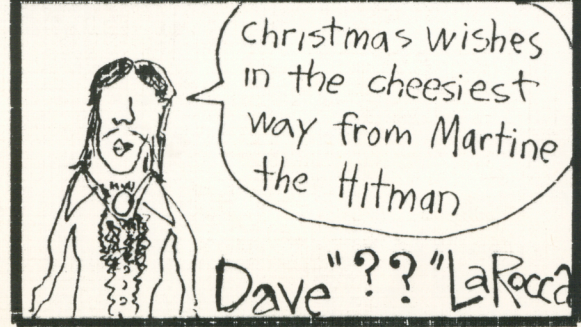 christmas wishes
in the cheesiest
way from Martine
the Hitman
Dave "??" LaRocca